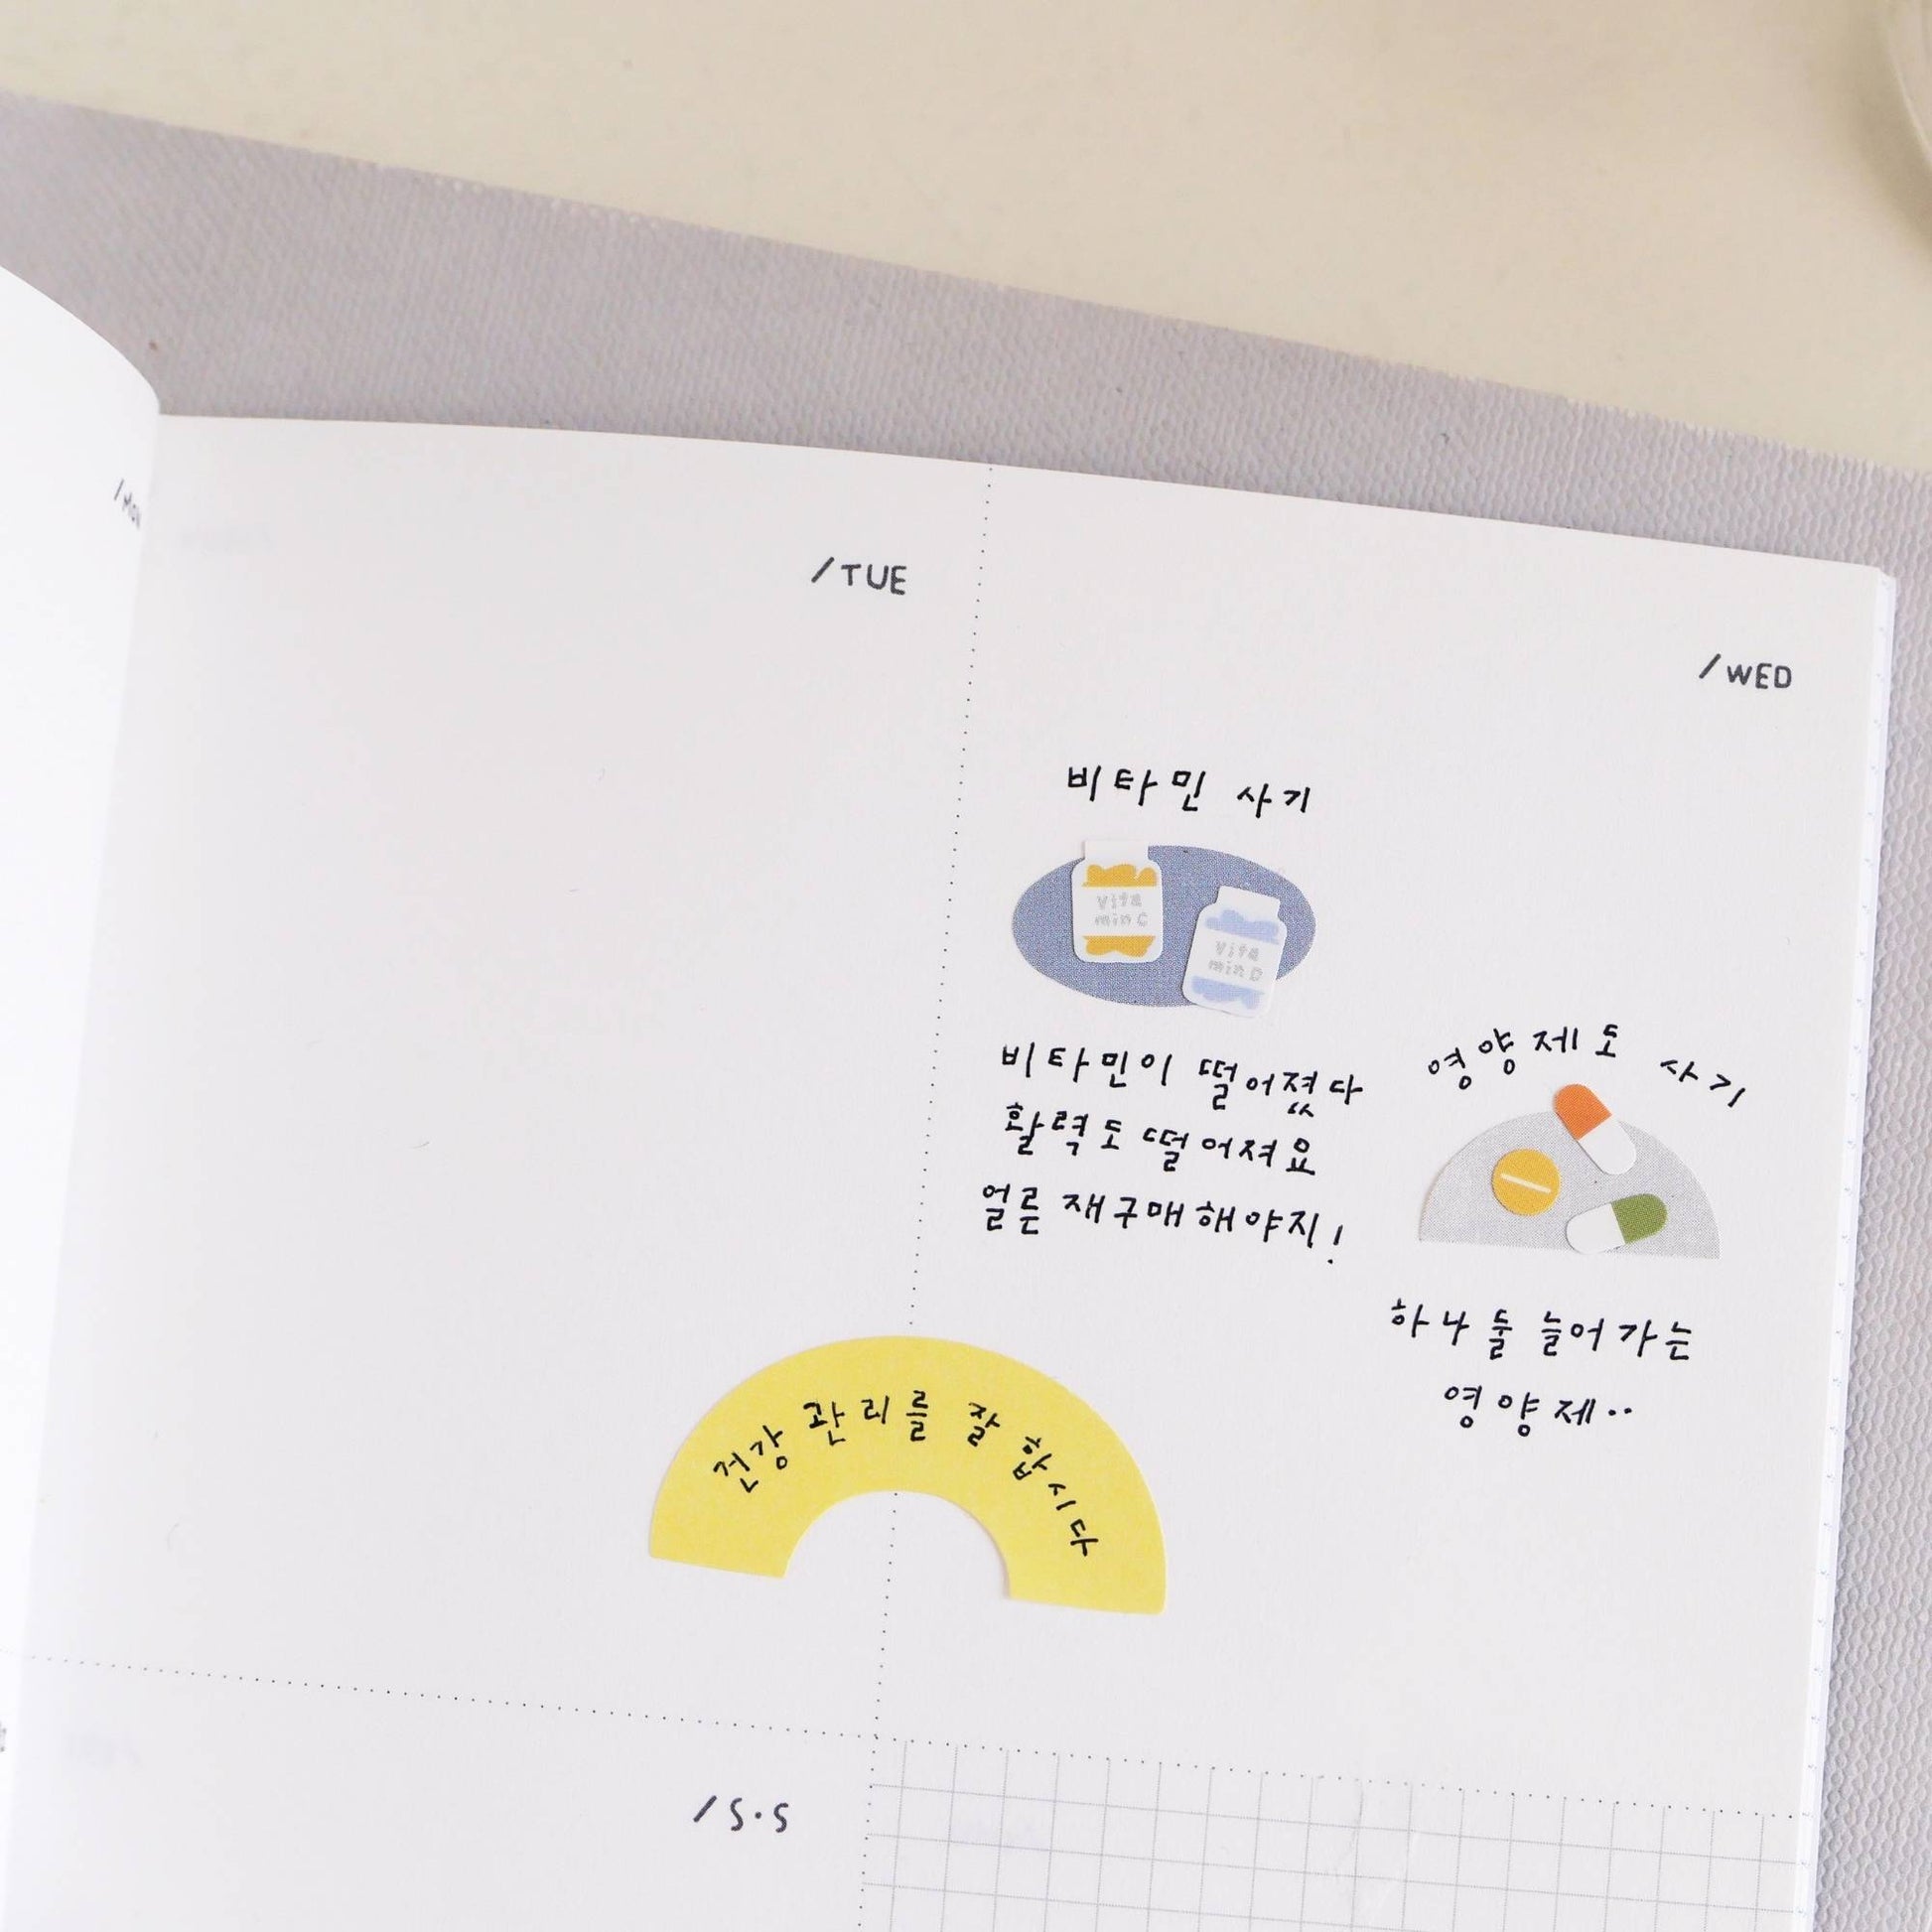 /MON
/TUE
/WED
비타민 사기
Vita
min C
Vita
min D
비타민이 떨어졌다
활력도 떨어져요
얼른 재구매해야지!
영양제도 사기
하나 둘 늘어가는
영양제..
건강 관리를 잘 합시다
/S·S